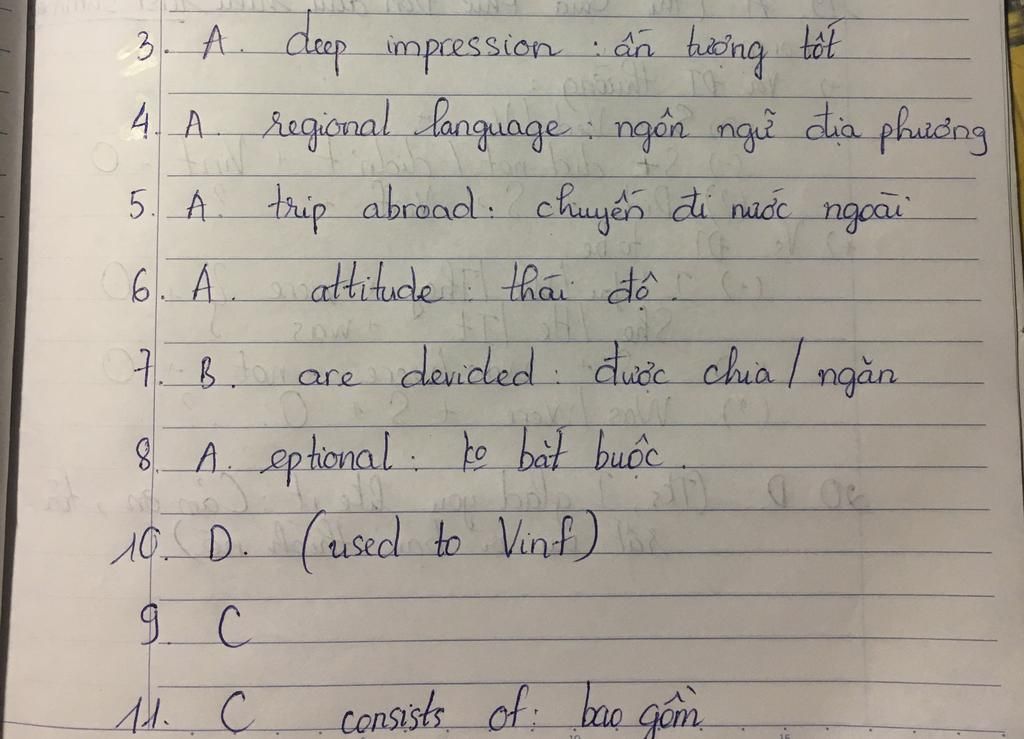 3. A. deep impression : ấn tượng tốt
4. A. regional language : ngôn ngữ địa phương
5. A. trip abroad : chuyến đi nước ngoài
6. A. attitude : thái độ.
7. B. are devided : được chia / ngăn
8. A. eptional : ko bắt buộc.
10. D. (used to Vinf)
9. C
11. C consists of : bao gồm